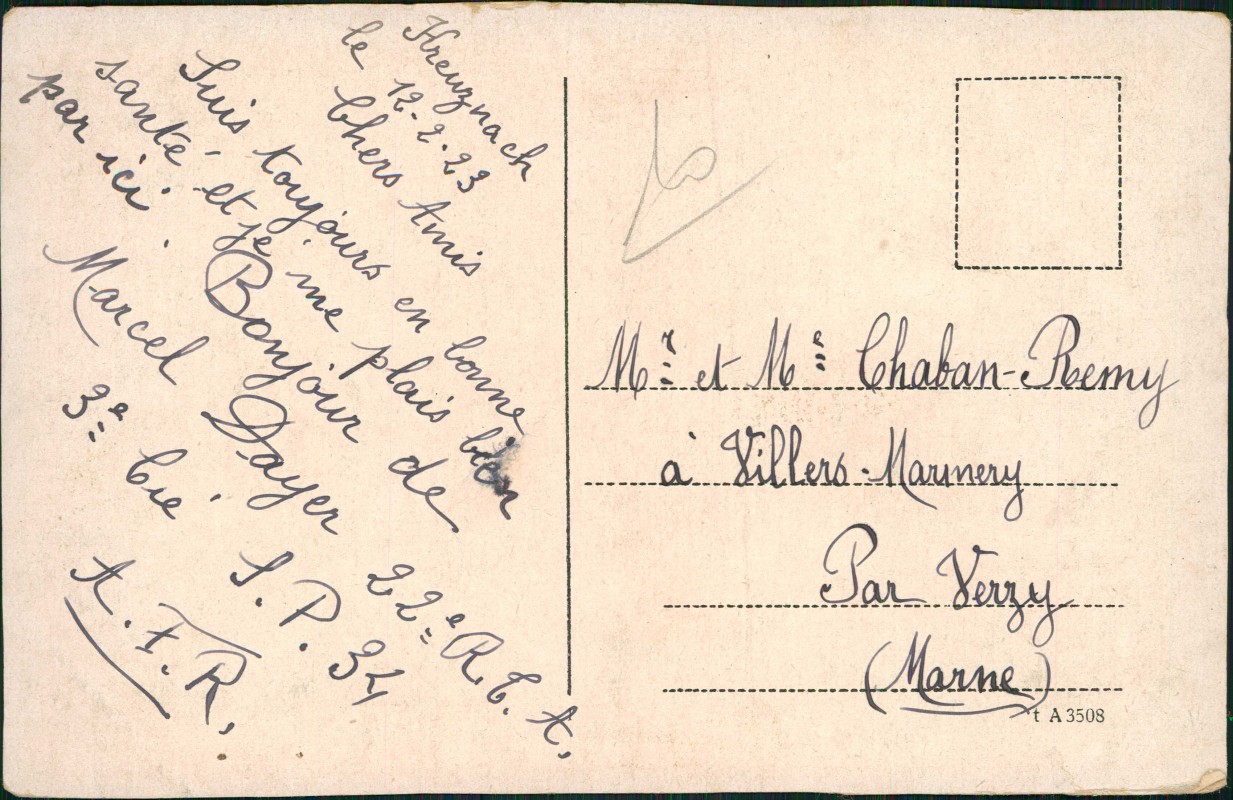 Kreuznach
le 12.2.23
Chers Amis
Suis toujours en bonne
santé et je me plais bien
par ici. Bonjour de
Marcel Dayer
3e Cie. 22e R.C.A.
S.P. 34
A.F.R.
Mr et Me Chaban-Remy
à Villers-Marmery
Par Verzy
(Marne)
t A 3508